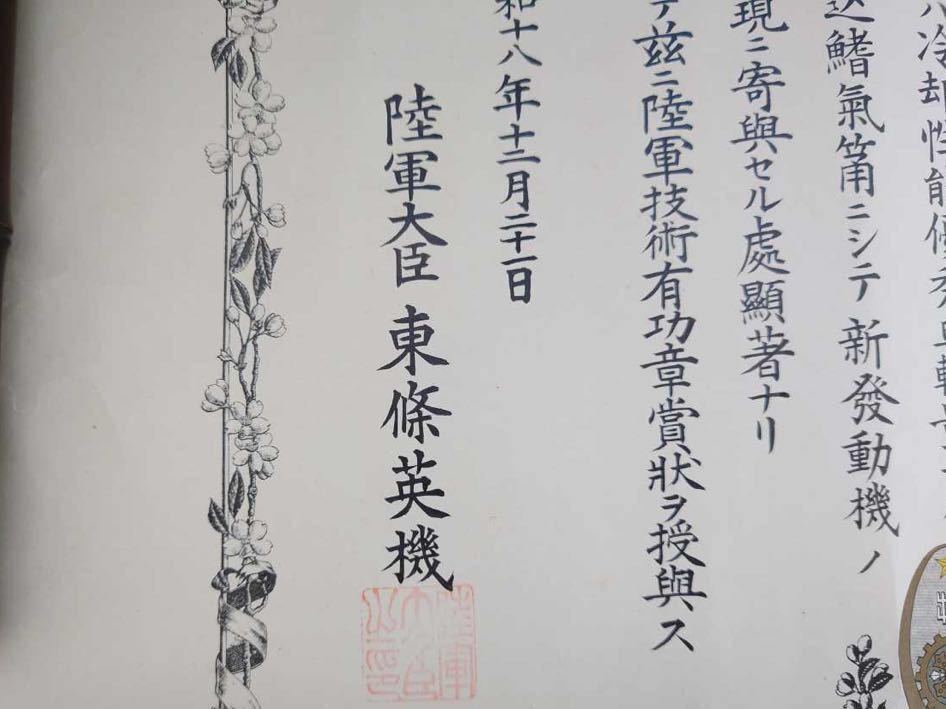 冷却性能優秀且
込鰭氣筩ニシテ新發動機ノ
現ニ寄與セル處顯著ナリ
テ茲ニ陸軍技術有功章賞狀ヲ授與ス
和十八年十二月二十一日
陸軍大臣 東條英機
陸軍
大臣
之印